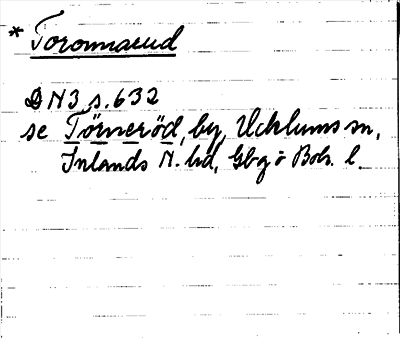 * Toronnarud
DN 3 s. 632
se Törneröd, by, Ucklums sn,
Inlands N. hd, Gbg o Boh. l.